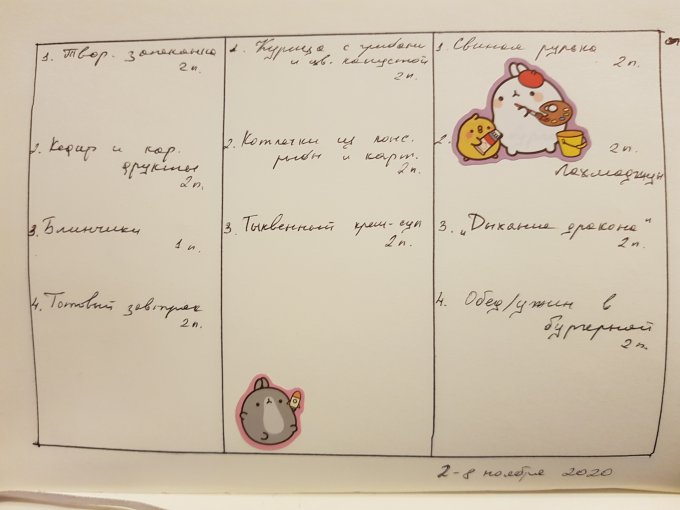 1. Твор. запеканка
2 п.
2. Кефир и кор.
фрукты
2 п.
3. Блинчики
1 п.
4. Готовый завтрак
2 п.
1. Курица с грибами
и цв. капустой
2 п.
2. Котлетки из конс.
рыбы и карт.
2 п.
3. Тыквенный крем-суп
2 п.
1. Свиная рулька
2 п.
2.
2 п.
Лахмаджун
3. „Дыхание дракона"
2 п.
4. Обед/ужин в
бургерной
2 п.
2-8 ноября 2020